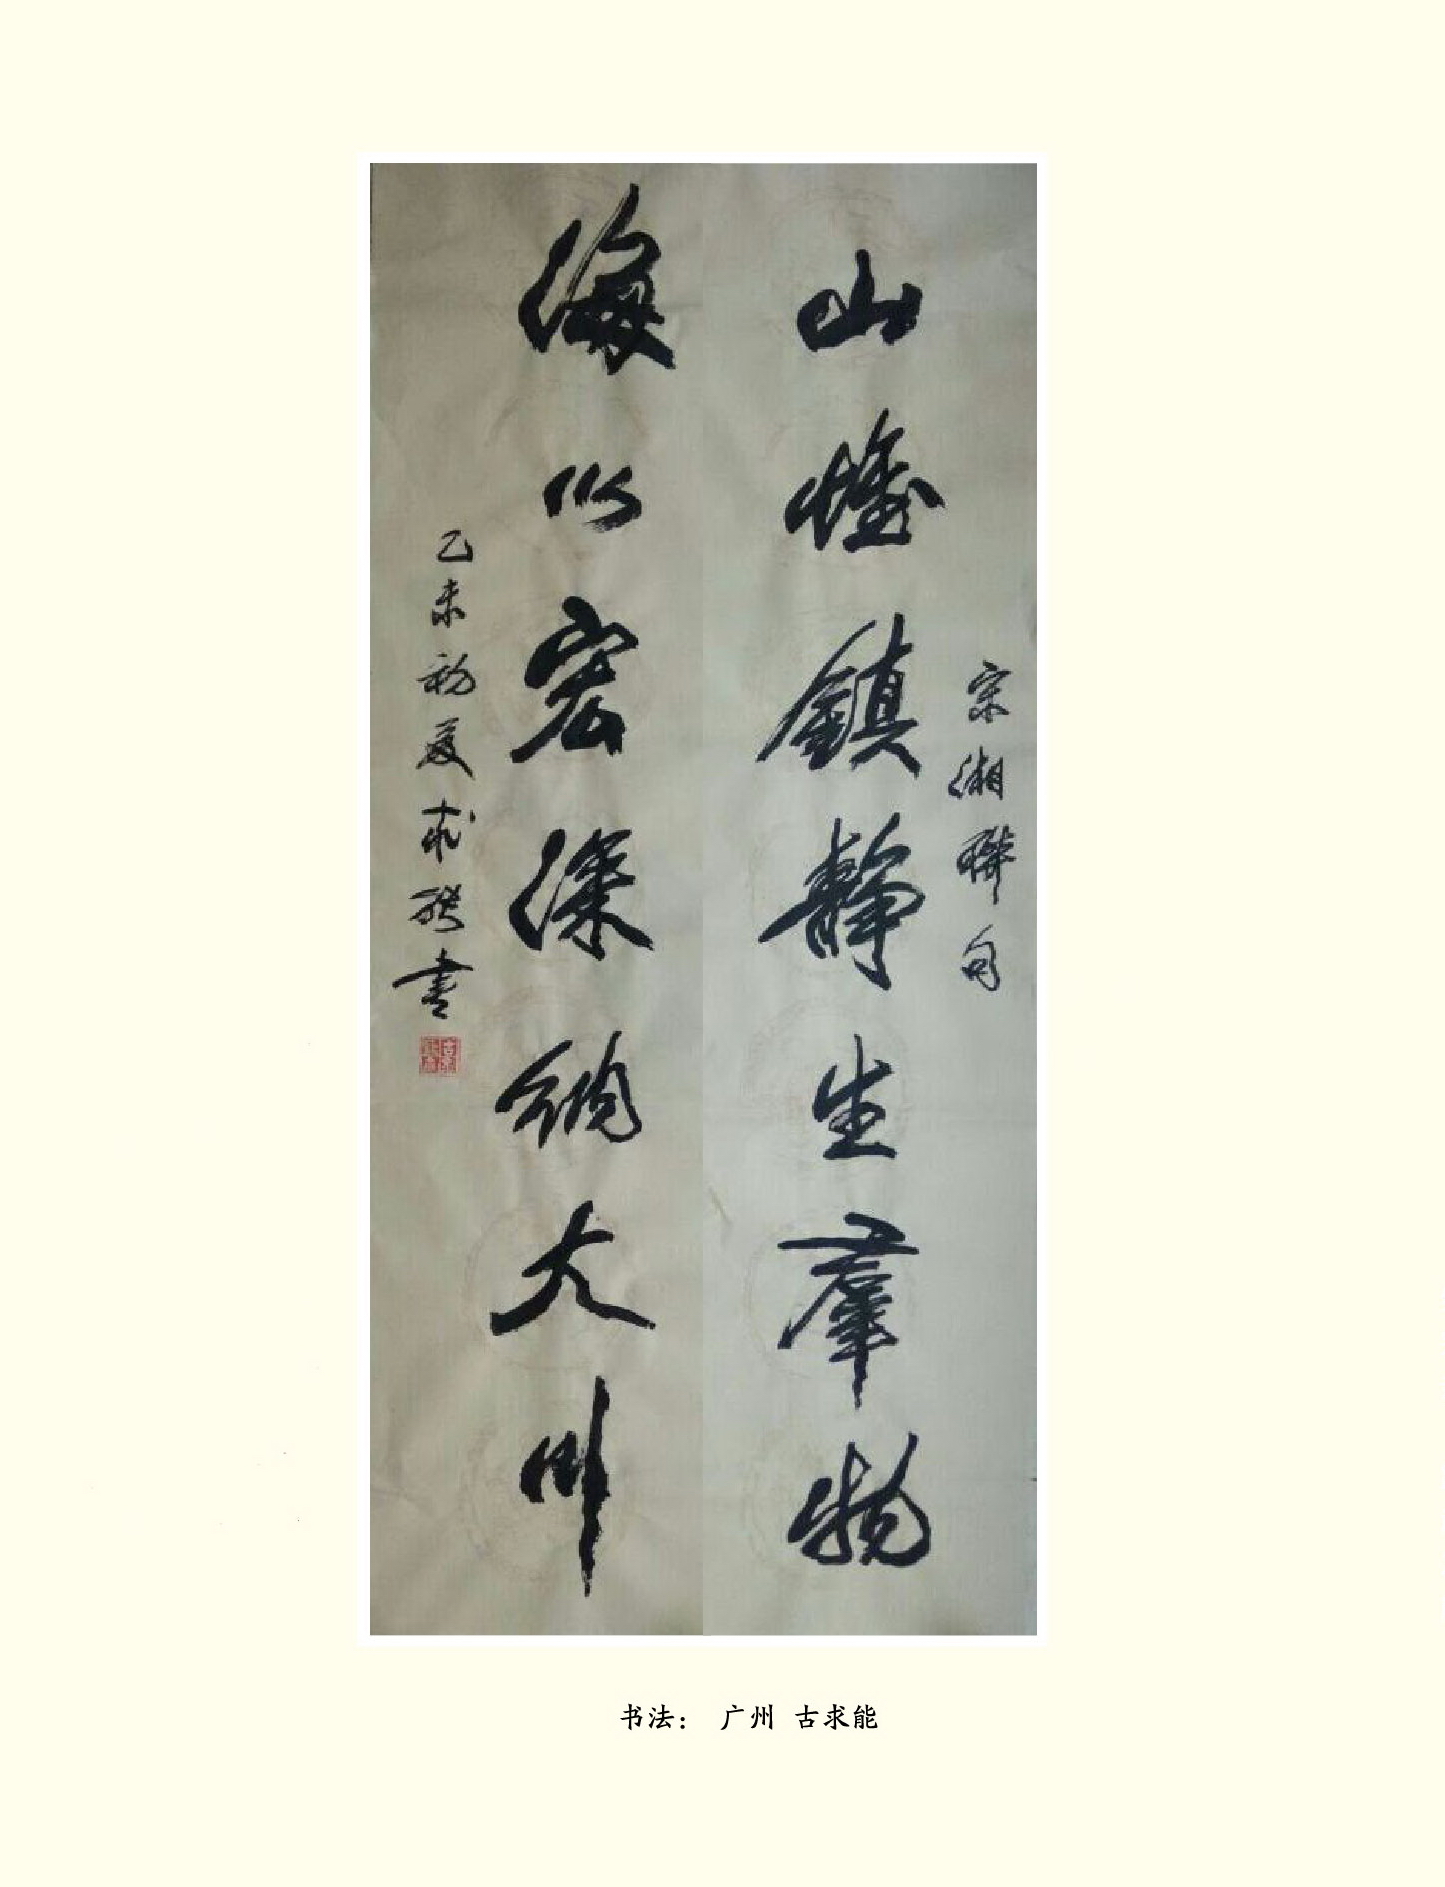 宋湘聯句
山惟鎮靜生羣物
海以宏深納大川
乙未初夏求能書
书法： 广州 古求能